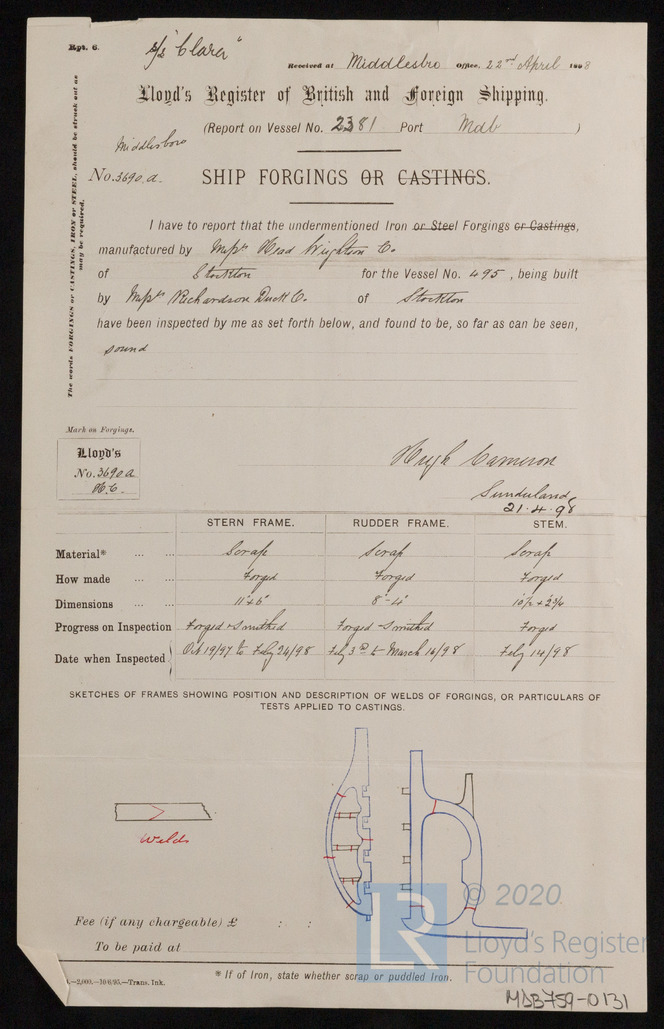 Rpt. 6.
s/s "Clara"
Received at Middlesbro Office, 22nd April 1898
Lloyd's Register of British and Foreign Shipping.
(Report on Vessel No. 2381 Port Mdb )
Middlesboro
No. 3690.a.
SHIP FORGINGS OR CASTINGS.
The words FORGINGS or CASTINGS, IRON or STEEL, should be struck out as
may be required.
I have to report that the undermentioned Iron or Steel Forgings or Castings,
manufactured by Messrs Head Wrightson & Co.
of Stockton for the Vessel No. 495, being built
by Messrs Richardson Duck & Co. of Stockton
have been inspected by me as set forth below, and found to be, so far as can be seen,
sound
Mark on Forgings.
Lloyd's
No. 3690 a
H.C.
Hugh Cameron
Sunderland
21.4.98
STERN FRAME. RUDDER FRAME. STEM.
Material* ... ... Scrap Scrap Scrap
How made ... ... Forged Forged Forged
Dimensions ... ... 11" × 6" 8"-4" 10½ × 2¾
Progress on Inspection Forged & Smithed Forged & Smithed Forged
Date when Inspected Oct 19/97 to Feby 24/98 Feby 3rd to March 14/98 Feby 14/98
SKETCHES OF FRAMES SHOWING POSITION AND DESCRIPTION OF WELDS OF FORGINGS, OR PARTICULARS OF
TESTS APPLIED TO CASTINGS.
Welds
Fee (if any chargeable) £ : :
To be paid at
* If of Iron, state whether scrap or puddled Iron.
—2,000.—10/6/95.—Trans. Ink.
LR
© 2020
Lloyd's Register
Foundation
MDB759-0131